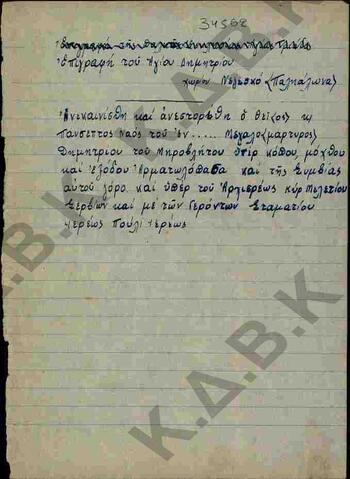 34562
Ἐπιγραφή τοῦ Ἁγίου Δημητρίου
χωρίον
Ἀνεκαινίσθη καί ἀνεστορήθη ὁ θεῖος κ
Πάνσεπτος Ναός τοῦ ἐν..... Μεγαλο(μάρτυρος)
Δημητρίου τοῦ Μυροβλήτου ὑπέρ κόπου, μόχθου
καί ἐξόδου Ἁρματωλόπασα καί τῆς Συμβίας
αὐτοῦ καί ὑπέρ τοῦ Ἀρχιερέως κύρ Μελετίου
Σερβίων καί μέ τῶν Γερόντων Σταματίου
Ἱερέως Πούλι Ἱερέως
Κ.Δ.Β.Κ
Κ.Δ.Β.Κ